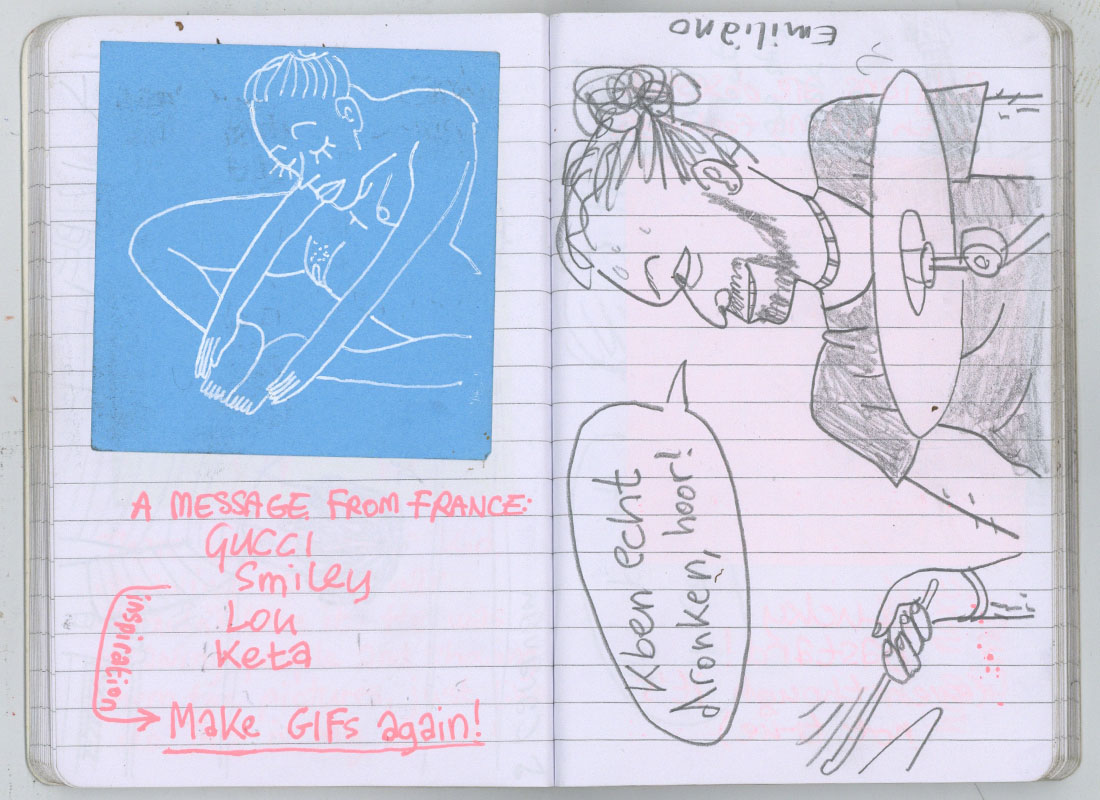 A MESSAGE FROM FRANCE:
GUCCI
Smiley
Lou
Keta
inspiration
Make GIFs again!
Emiliano
Kben echt
dronken, hoor!